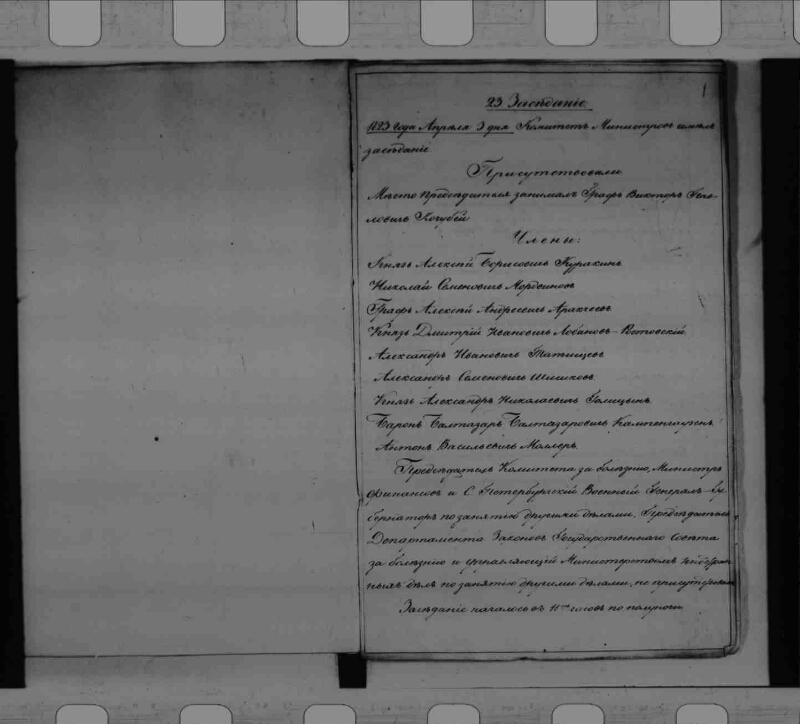 1
23 Засѣданіе
1823 года Апрѣля 3 дня Комитетъ Министровъ имѣлъ
засѣданіе
Присутствовали
Мѣсто Предсѣдателя занималъ Графъ Викторъ Пав-
ловичъ Кочубей.
Члены:
Князь Алексѣй Борисовичъ Куракинъ
Николай Семеновичъ Мордвиновъ
Графъ Алексѣй Андреевичъ Аракчеевъ
Князь Дмитрій Ивановичъ Лобановъ-Ростовскій
Александръ Ивановичъ Татищевъ
Александръ Семеновичъ Шишковъ
Князь Александръ Николаевичъ Голицынъ
Баронъ Балтазаръ Балтазаровичъ Кампенгаузенъ
Антонъ Васильевичъ Моллеръ.
Предсѣдатель Комитета за болѣзнію, Министръ
Финансовъ и С. Петербургскій Военный Генералъ-Гу-
бернаторъ по занятію другими дѣлами, Предсѣдатель
Департамента Законовъ Государственнаго Совѣта
за болѣзнію и управляющій Министерствомъ Иностран-
ныхъ дѣлъ по занятію другими дѣлами, не присутствовали
Засѣданіе началось въ 11 часовъ по полуночи.